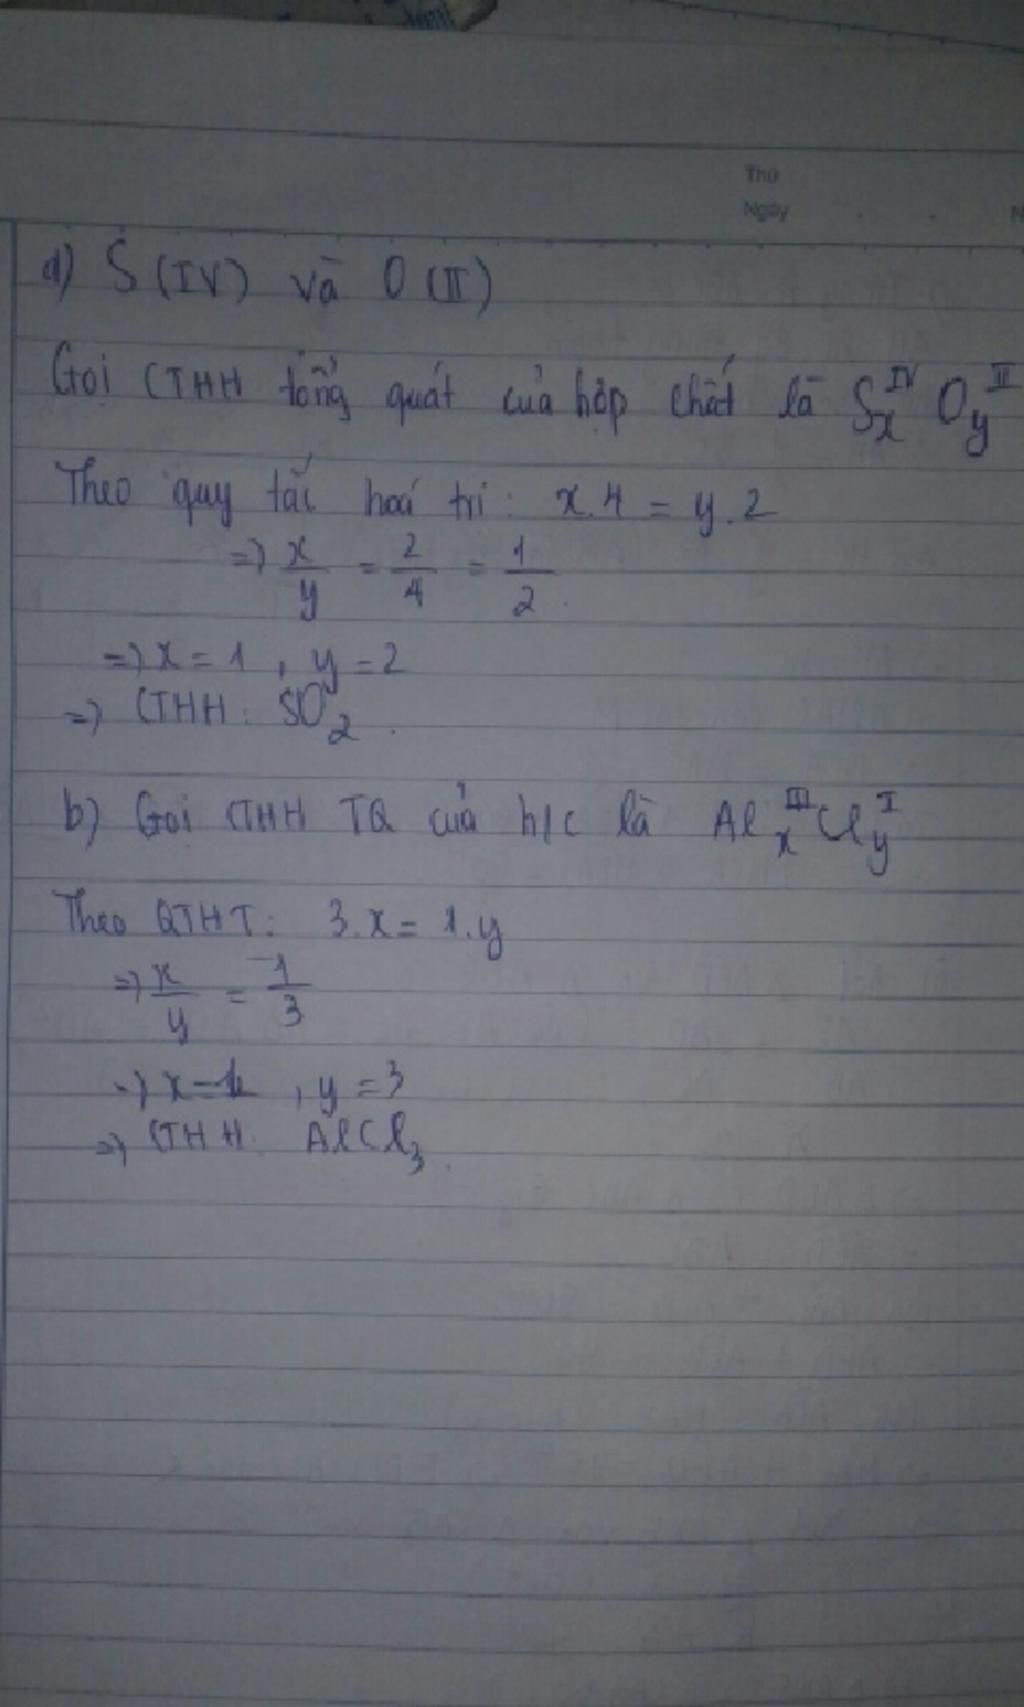 Thứ
Ngày
a) S (IV) và O (II)
Gọi CTHH tổng quát của hợp chất là SₓᴵⱽOᵧᴵᴵ
Theo quy tắc hoá trị: x.4 = y.2
=> x/y = 2/4 = 1/2
=> x = 1, y = 2
=> CTHH: SO₂.
b) Gọi CTHH TQ của h/c là AlₓᴵᴵᴵClᵧᴵ
Theo QTHT: 3.x = 1.y
=> x/y = 1/3
=> x = 1, y = 3
=> CTHH: AlCl₃.